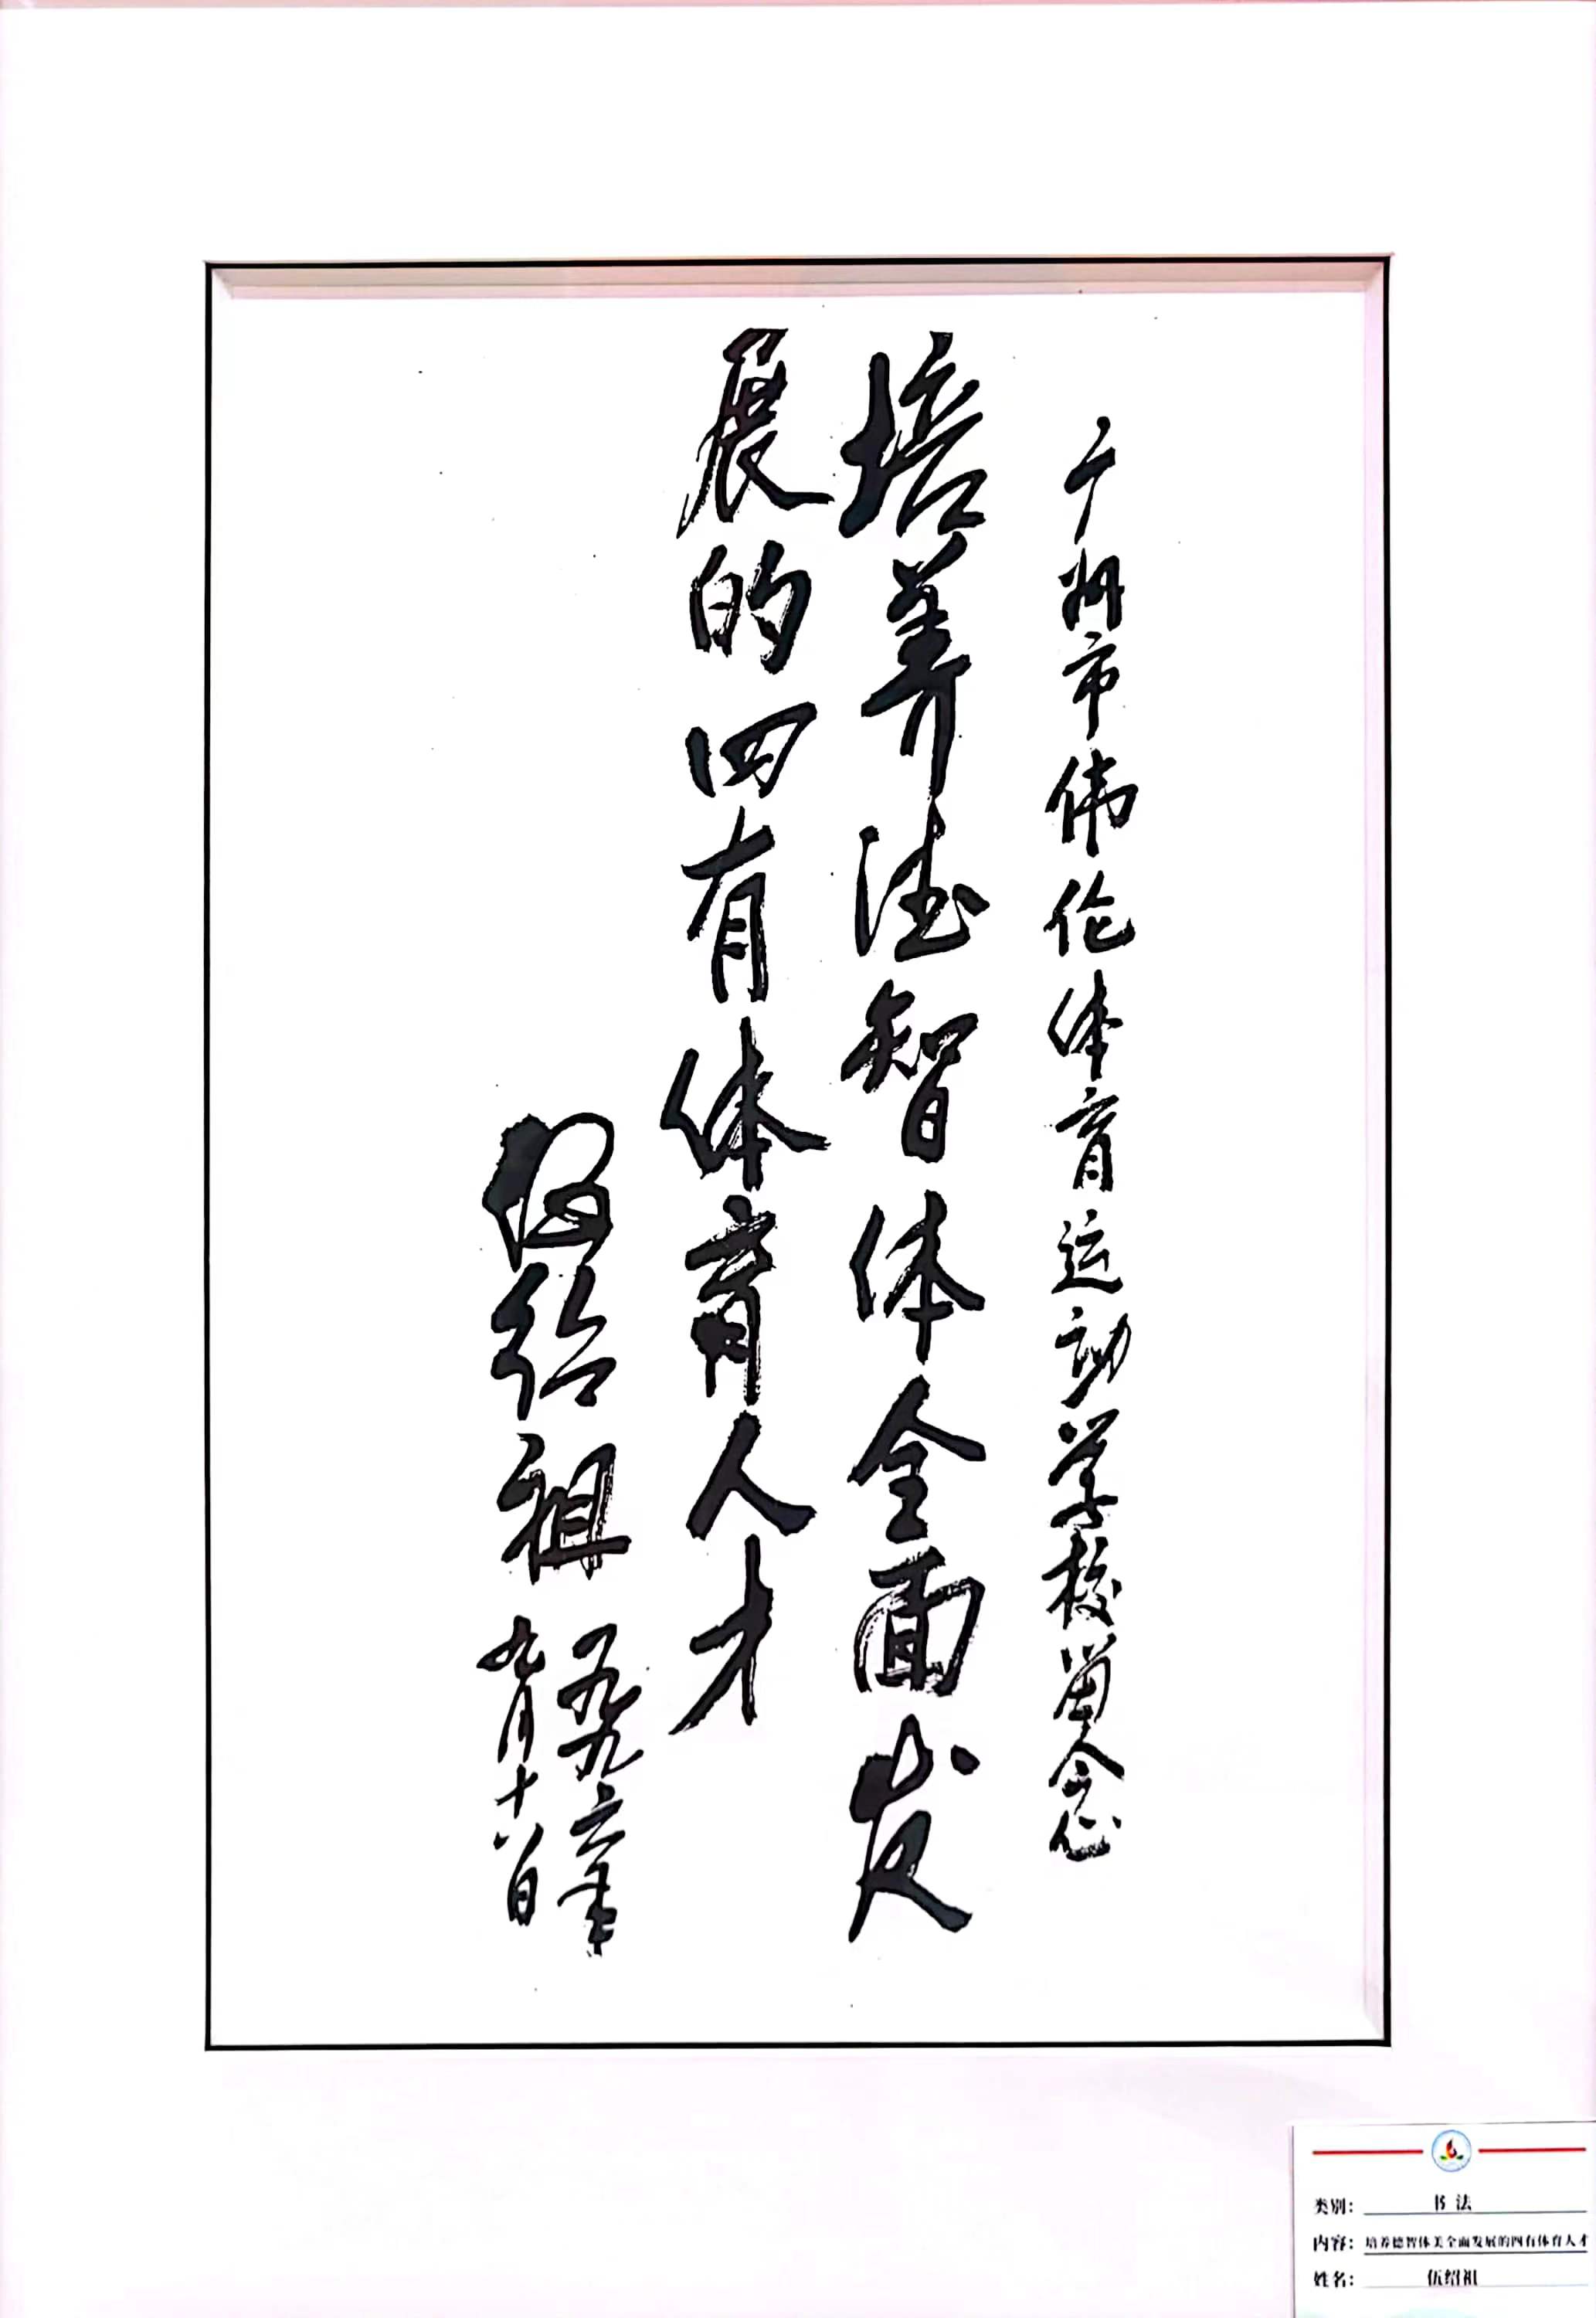 广州市伟伦体育运动学校留念
培养德智体全面发
展的四有体育人才
伍绍祖
一九九六年
九月十八日
类别: 书法
内容: 培养德智体美全面发展的四有体育人才
姓名: 伍绍祖